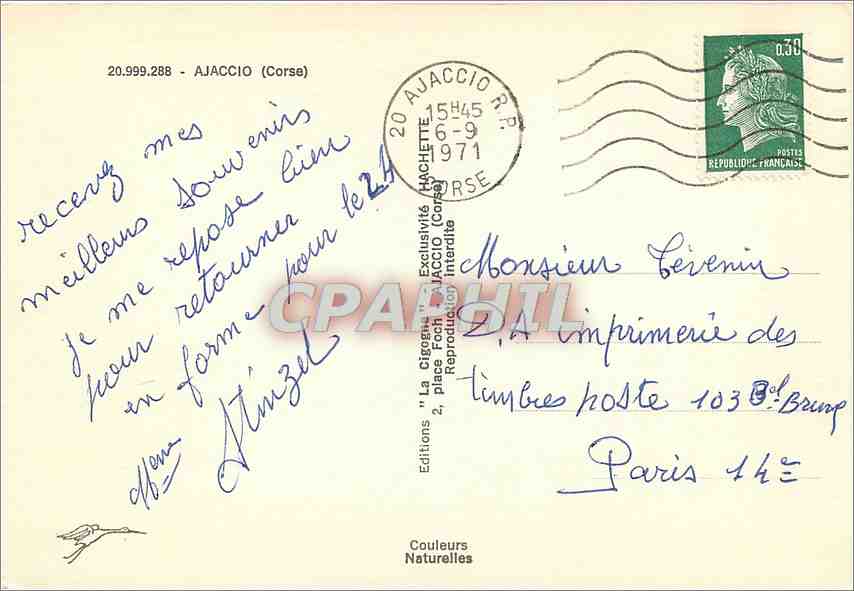 20.999.288 - AJACCIO (Corse)
recevez mes
meilleurs souvenirs
je me repose bien
pour retourner
en forme pour le 24
Mme Stinzel
20 AJACCIO R.P.
15H45
6-9
1971
CORSE
0,30
POSTES
REPUBLIQUE FRANÇAISE
Editions "La Cigogne" - Exclusivité HACHETTE
2, place Foch - AJACCIO (Corse)
Reproduction Interdite
Monsieur Tévenin
imprimerie des
timbres poste 103 Bd Brune
Paris 14e
Couleurs
Naturelles
CPAPHIL